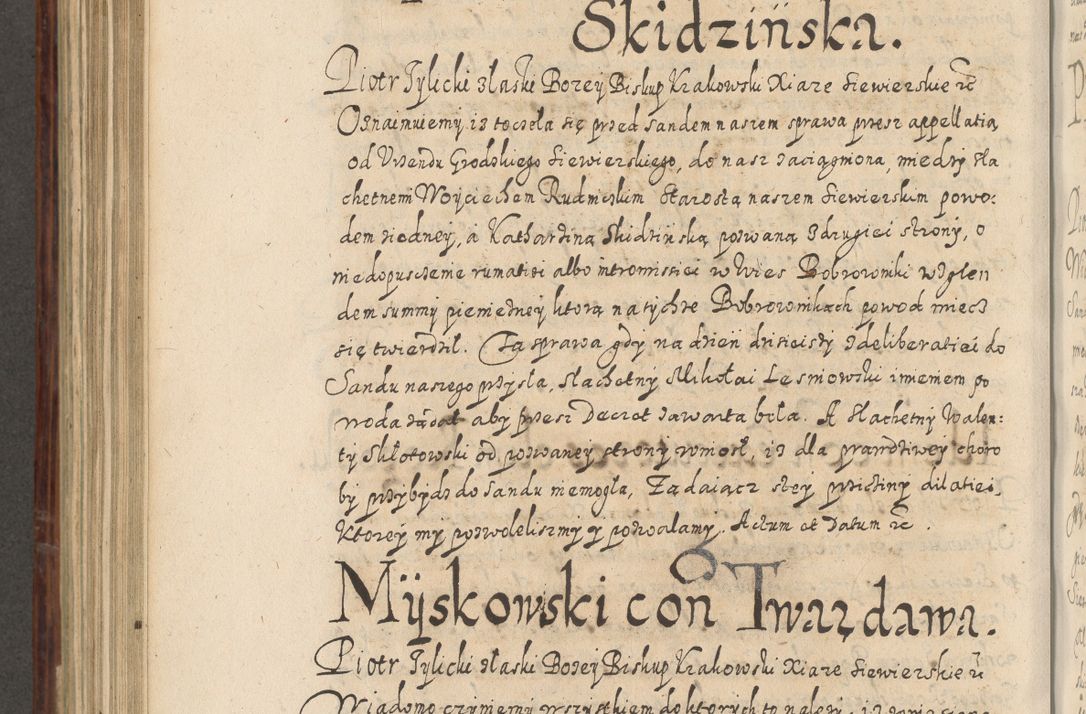 Skidzińska.
Piotr Tylicki z łaski Bozey Biskup Krakowski Xiaze Siewierskie etc
Oznaimuiemy iz toczeła się przed Sandem naszem sprawa przez appellatią
od Vrzendu Grodzkiego Siewierskiego, do nasz zaciągniona, miedzy sla
chetnem Woyciechem Rudniczkim Starostą naszem Siewierskim powo:
dem ziedney, a Katharziną Skidzinską pozwaną z drugiei strony, o
niedopusczenie rumatiei albo intromissiei w wies Bobrowniki wzglen
dem summy pieniezney, ktorą na tychze Bobrownikach powod miecz
się twierdził. Ta sprawa gdy na dzien dzisieiszy z deliberatiei do
Sandu naszego przysła, slachetny Mikołai Lesniowski imieniem po
woda ządał aby przez Decret zawarta była. A slachetny Walen:
ty Skłotowski od pozwaney strony wniosł, iz dla prawdziwey choro
by przybydz do Sandu niemogła, Ządaiącz stey przicziny dilatiei,
Ktorey my pozwoleliszmy y pozwalamy. Actum et Datum etc.
Mÿskowski con Twardawa.
Piotr Tylicki z łaski Bozey Biskup Krakowski Xiaze Siewierskie etc
Wiadomo czyniemy wszystkiem do ktorych to nalezy, iz